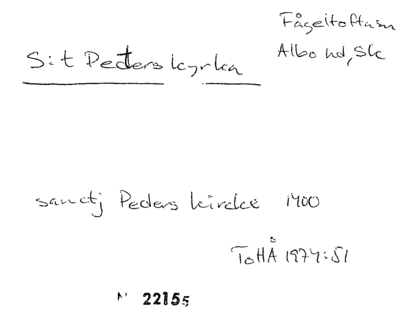 Fågeltofta sn
Albo hd, Sk
S:t Peders kyrka
sanctj Peders kircke 1400
ToHÅ 1974:51
N 22155